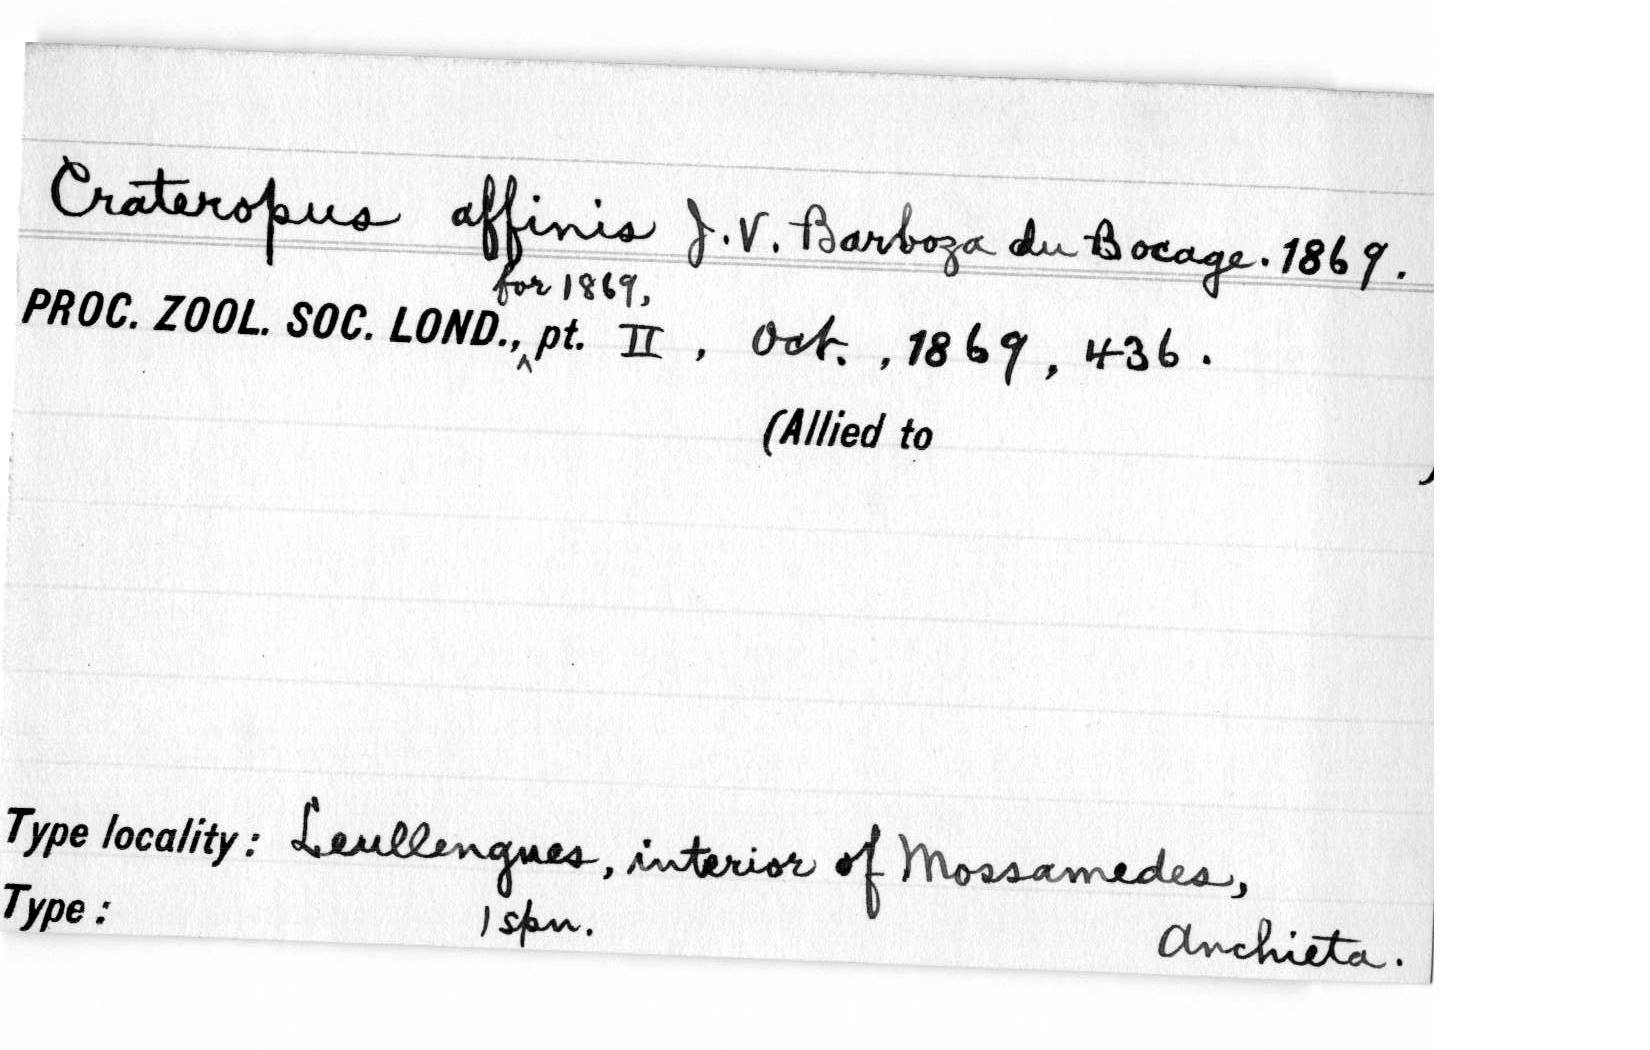 Crateropus affinis J.V. Barboza du Bocage. 1869.
for 1869,
PROC. ZOOL. SOC. LOND., ^ pt. II, Oct., 1869, 436.
(Allied to )
Type locality: Leullengues, interior of Mossamedes,
Type: 1 spn. Anchieta.